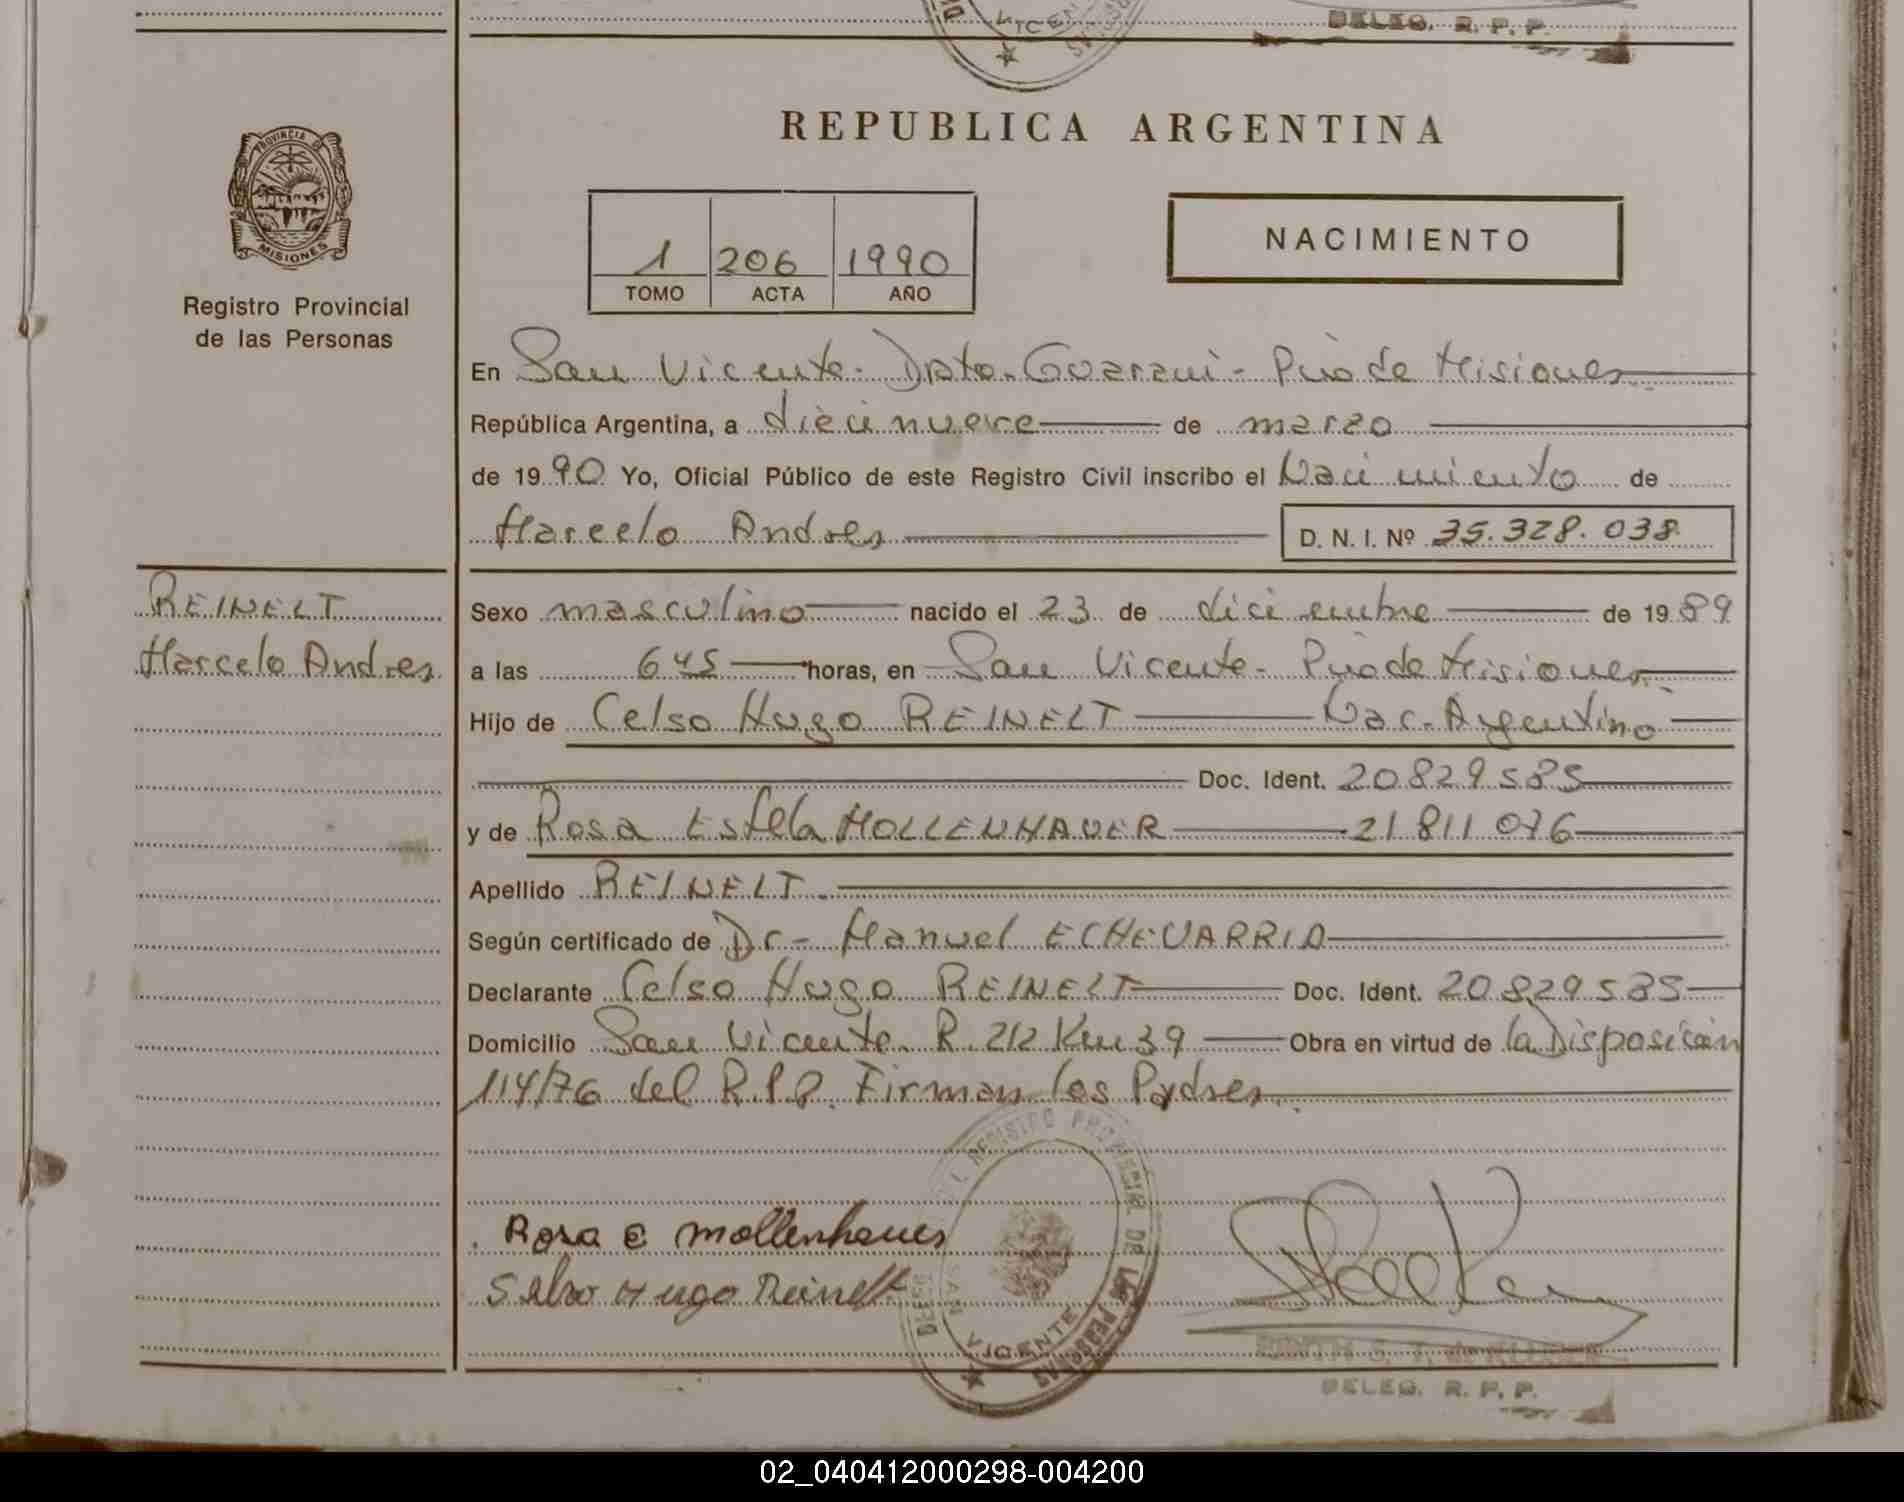 VICEN
DELEG. R. P. P.
PROVINCIA DE
MISIONES
Registro Provincial
de las Personas
REPUBLICA ARGENTINA
1 206 1990
TOMO ACTA AÑO
NACIMIENTO
En San Vicente - Dpto. Guarani - Pcia de Misiones
República Argentina, a diecinueve de marzo
de 1990 Yo, Oficial Público de este Registro Civil inscribo el Nacimiento de
Marcelo Andres D. N. I. Nº 35.328.038
REINELT
Marcelo Andres
Sexo masculino nacido el 23 de diciembre de 1989
a las 645 horas, en San Vicente - Pcia de Misiones
Hijo de Celso Hugo REINELT Nac. Argentino
Doc. Ident. 20829585
y de Rosa Estela MOLLENHAUER 21811076
Apellido REINELT
Según certificado de Dr. Manuel ECHEVARRIA
Declarante Celso Hugo REINELT Doc. Ident. 20829585
Domicilio San Vicente R. 212 Km 39 Obra en virtud de la Disposición
114/76 del R.P.P. Firman los Padres
Rosa E Mollenhauer
Selso Hugo Reinelt
REGISTRO PROVINCIAL DE LAS PERSONAS
SAN VICENTE
DELEG. R. P. P.
02_040412000298-004200